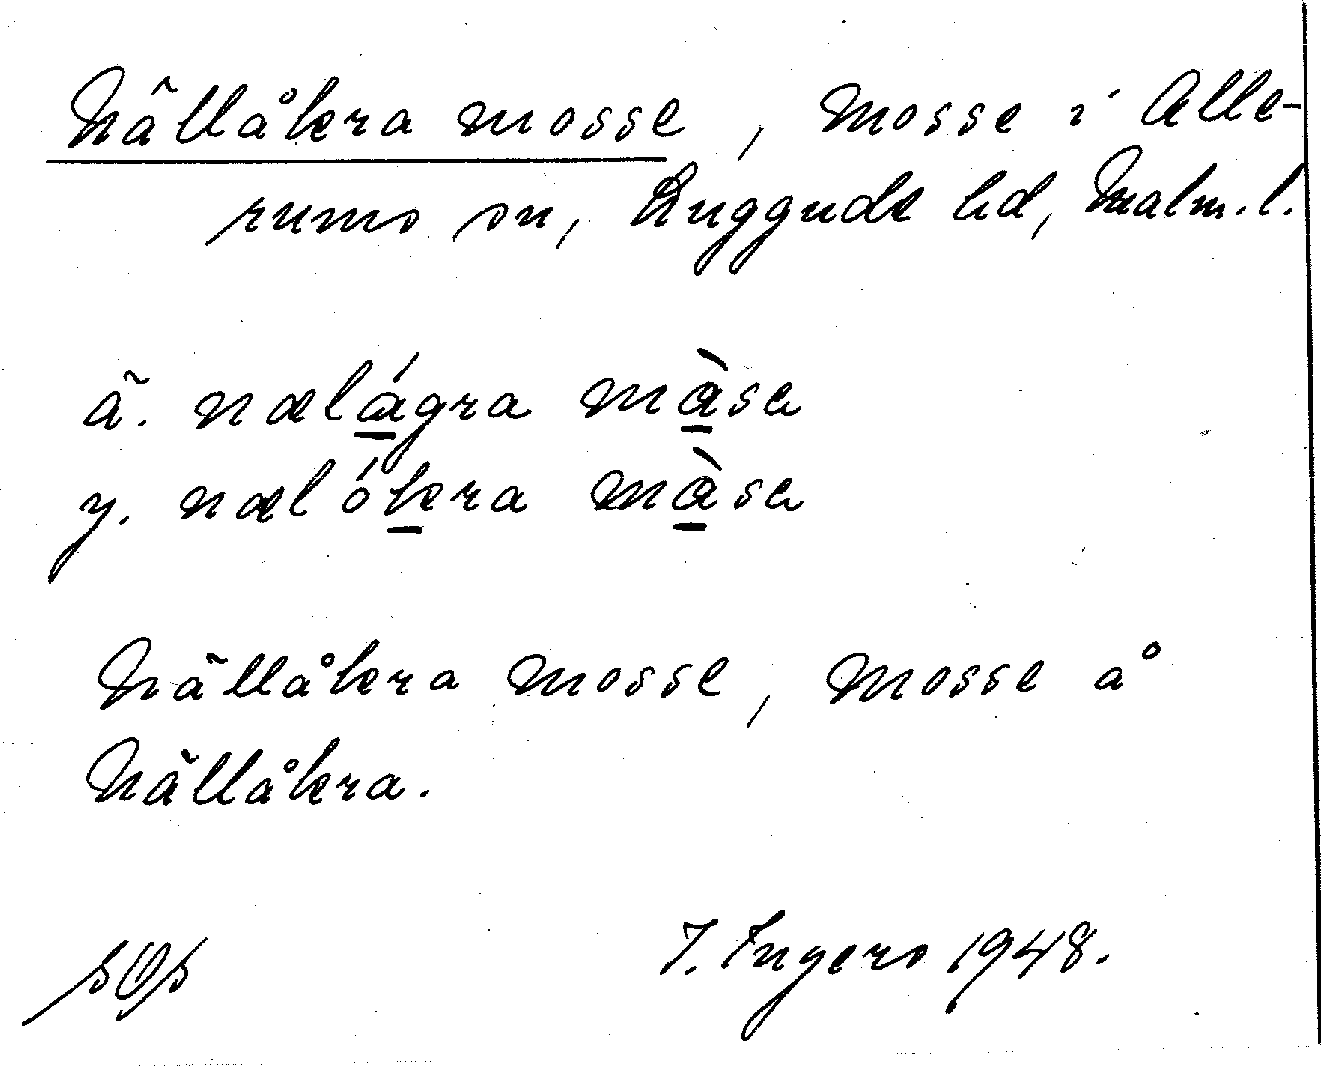 Nällåkra mosse, mosse i Alle-
rums sn, Luggude hd, Malm. l.
ä. nælágra màsa
y. nælókra màsa
Nällåkra mosse, mosse å
Nällåkra.
I. Ingers 1948.